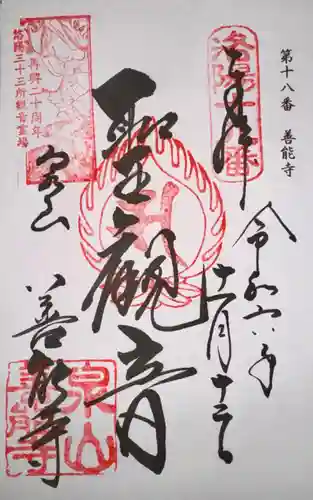 第十八番　善能寺
令和六年
十一月十三日
奉拝
洛陽十八番
聖観音
泉山
善能寺
再興二十周年
洛陽三十三所観音霊場
泉山
善能寺